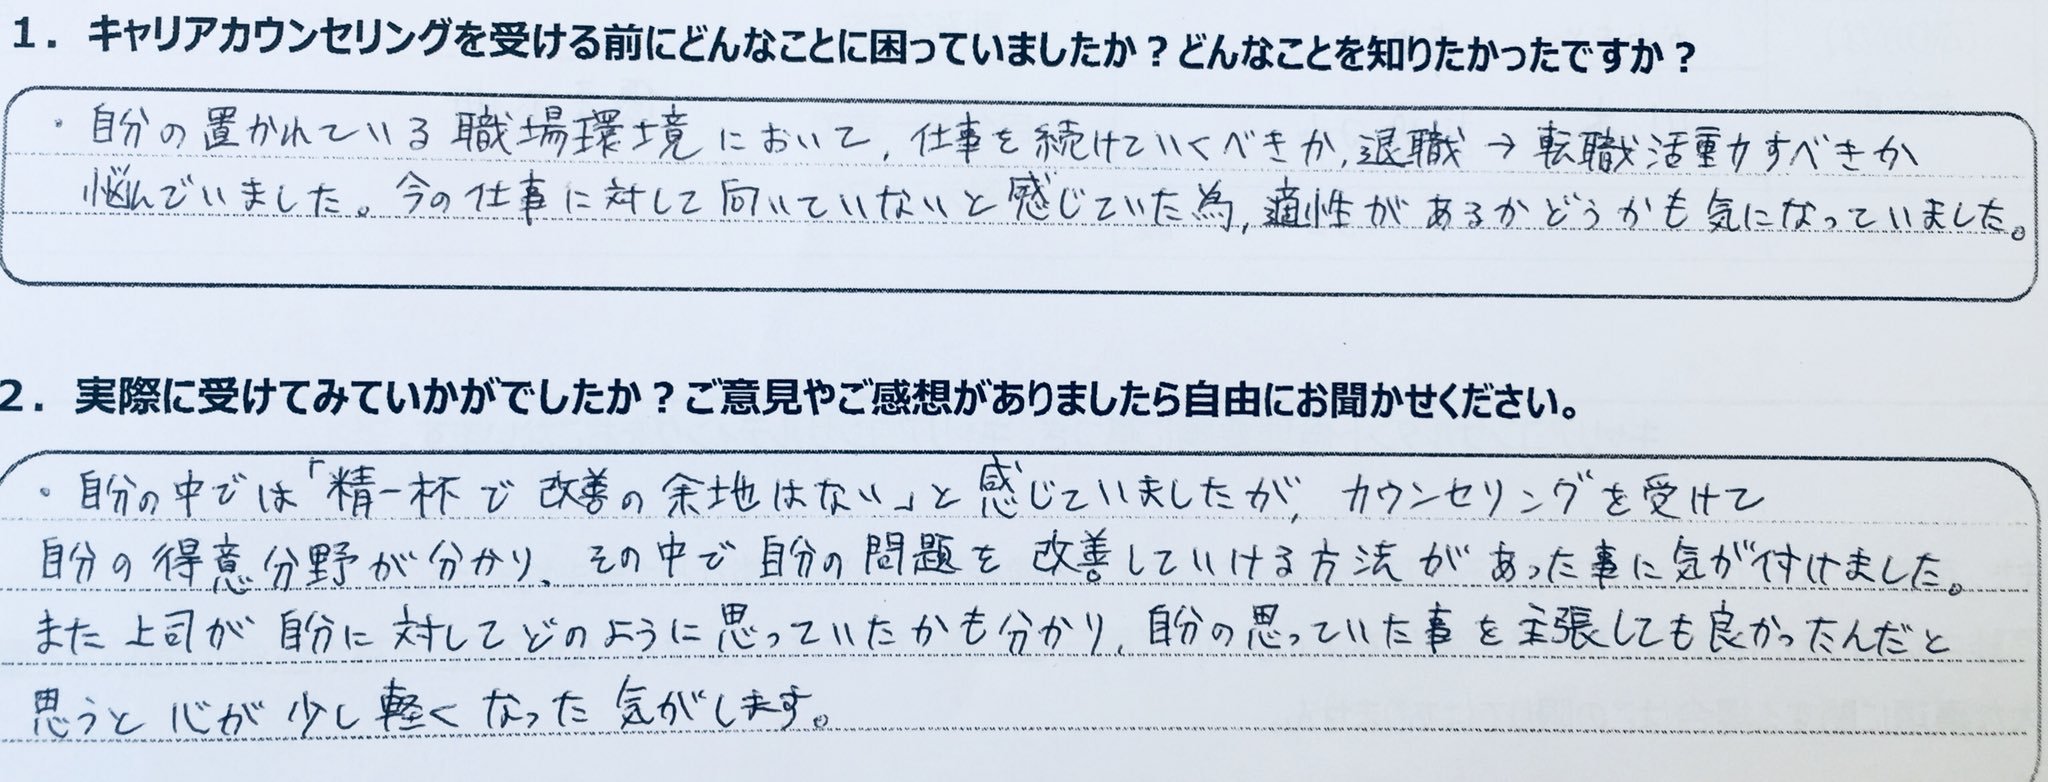 1．キャリアカウンセリングを受ける前にどんなことに困っていましたか？どんなことを知りたかったですか？
・自分の置かれている職場環境において、仕事を続けていくべきか、退職→転職活動すべきか
悩んでいました。今の仕事に対して向いていないと感じていた為、適性があるかどうかも気になっていました。
2．実際に受けてみていかがでしたか？ご意見やご感想がありましたら自由にお聞かせください。
・自分の中では「精一杯で改善の余地はない」と感じていましたが、カウンセリングを受けて
自分の得意分野が分かり、その中で自分の問題を改善していける方法があった事に気が付けました。
また上司が自分に対してどのように思っていたかも分かり、自分の思っていた事を主張しても良かったんだと
思うと心が少し軽くなった気がします。